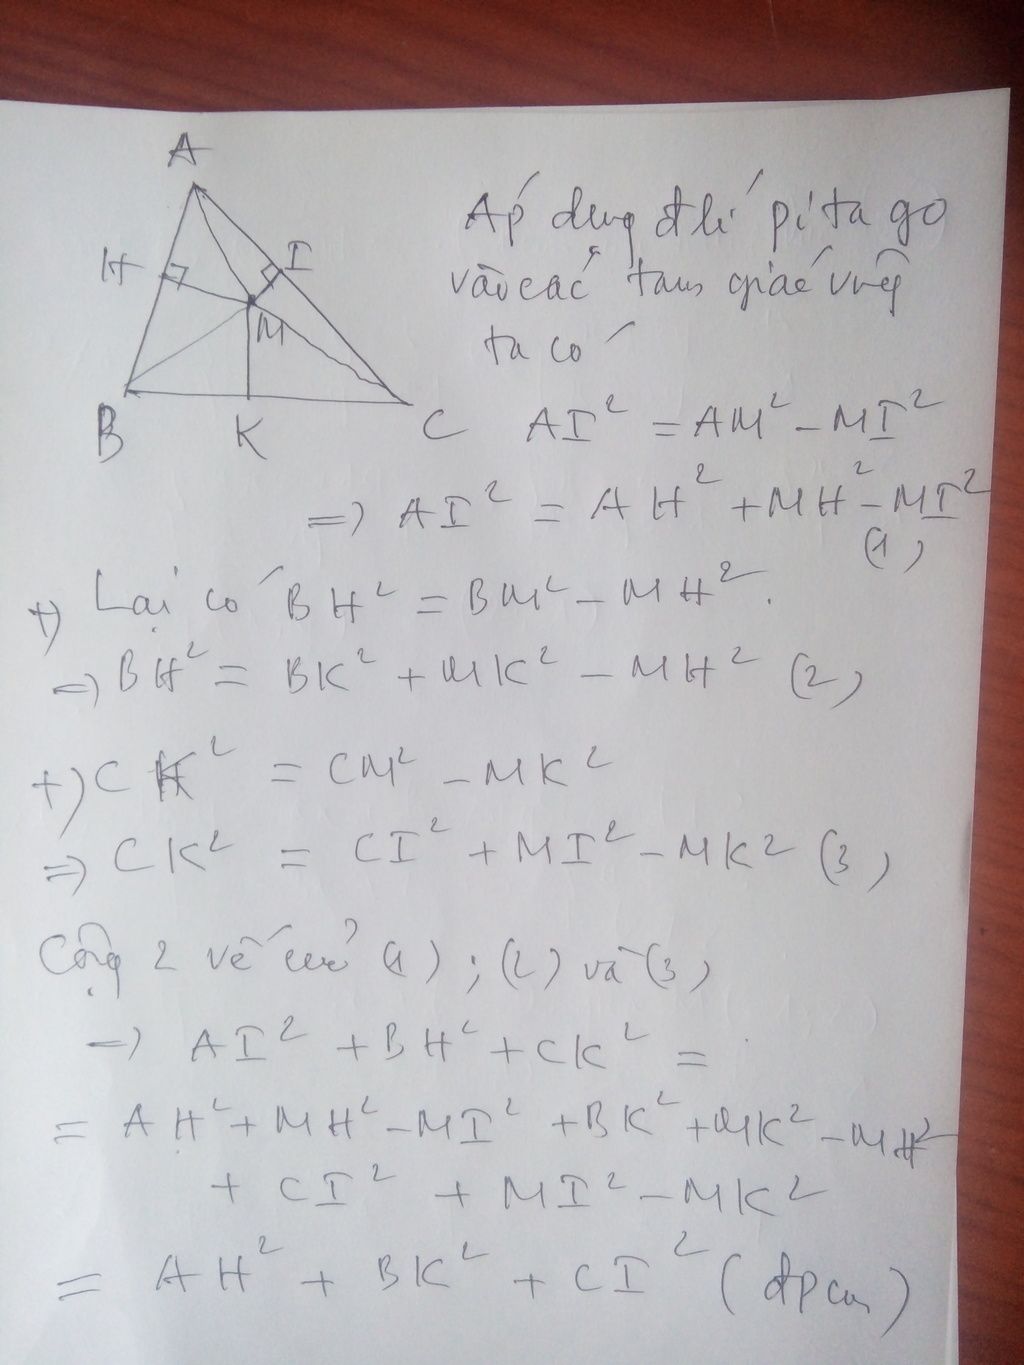 A
H
I
M
B
K
C
Áp dụng đ lí pi ta go
vào các tam giác vuông
ta có
AI² = AM² - MI²
=> AI² = AH² + MH² - MI²
(1)
+) Lại có BH² = BM² - MH².
=> BH² = BK² + MK² - MH² (2)
+) CK² = CM² - MK²
=> CK² = CI² + MI² - MK² (3)
Cộng 2 vế của (1); (2) và (3)
=> AI² + BH² + CK² =
= AH² + MH² - MI² + BK² + MK² - MH²
+ CI² + MI² - MK²
= AH² + BK² + CI² (đpcm)